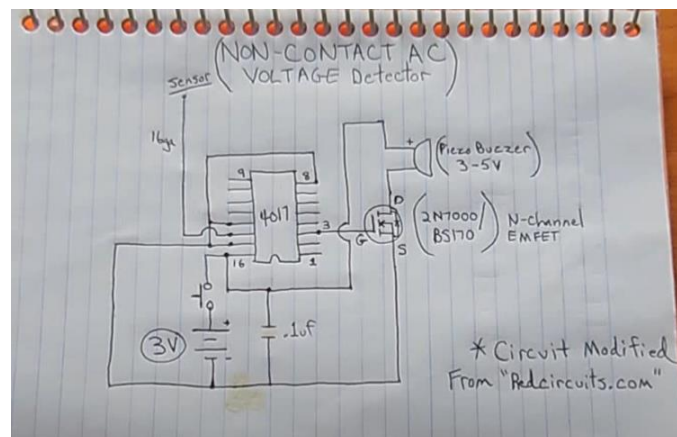 NON-CONTACT AC
VOLTAGE Detector
Sensor
16ga
9
8
4017
3
16
1
+
Piezo Buzzer
3-5V
D
G
S
2N7000/
BS170
N-Channel
EMFET
3V
+
-
.1uf
* Circuit Modified
From "Redcircuits.com"